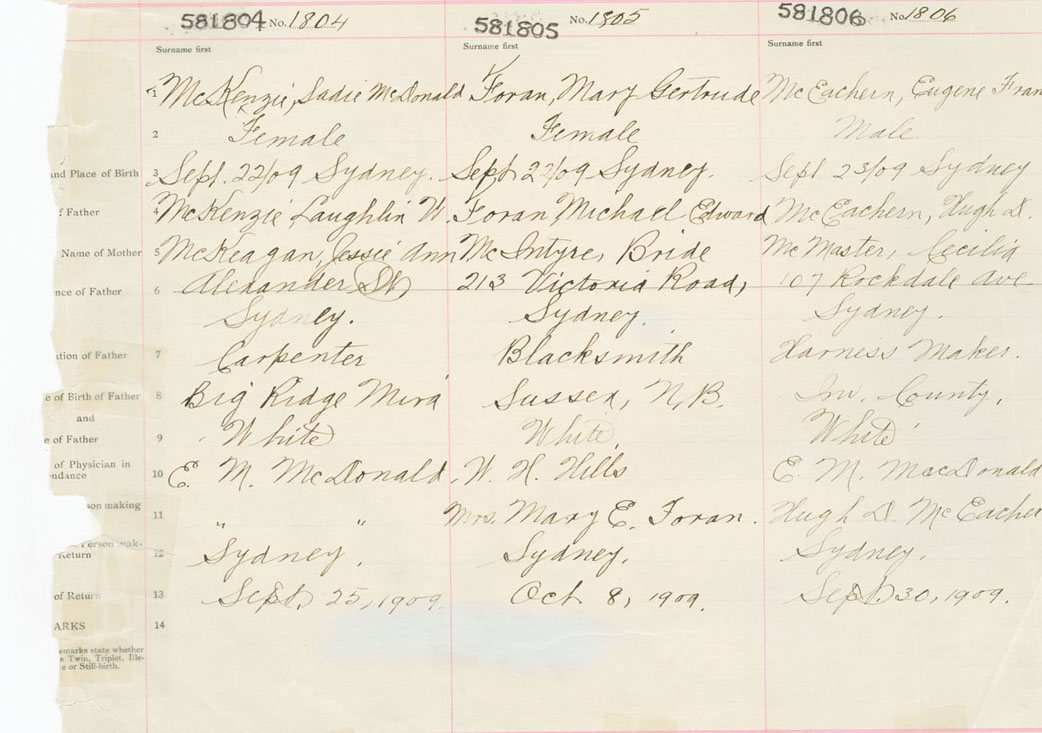 581804 No. 1804
581805 No. 1805
581806 No. 1806
Surname first
Surname first
Surname first
1 McKenzie, Sadie McDonald
Foran, Mary Gertrude
McEachern, Eugene Fran
2 Female
Female
Male
and Place of Birth 3 Sept. 22/09 Sydney.
Sept 22/09 Sydney.
Sept. 23/09 Sydney
f Father 4 McKenzie Laughlin W.
Foran Michael Edward
McEachern, Hugh D.
Name of Mother 5 McKeagan, Jessie Ann
McIntyre, Bride
McMaster, Cecilia
nce of Father 6 Alexander St
213 Victoria Road,
107 Rockdale Ave.
Sydney.
Sydney.
Sydney.
ation of Father 7 Carpenter
Blacksmith
Harness Maker.
e of Birth of Father 8 Big Ridge Mira
Sussex, N.B.
Inv. County,
and
e of Father 9 White
White,
White
of Physician in
ndance 10 E. M. McDonald,
W. H. Hills
E. M. MacDonald
son making
11 " "
Mrs. Mary E. Foran.
Hugh D. McEacher
Person mak-
Return 12 Sydney.
Sydney.
Sydney.
of Return 13 Sept. 25, 1909.
Oct 8, 1909.
Sept. 30, 1909.
ARKS 14
emarks state whether
s Twin, Triplet, Ille-
e or Still-birth.